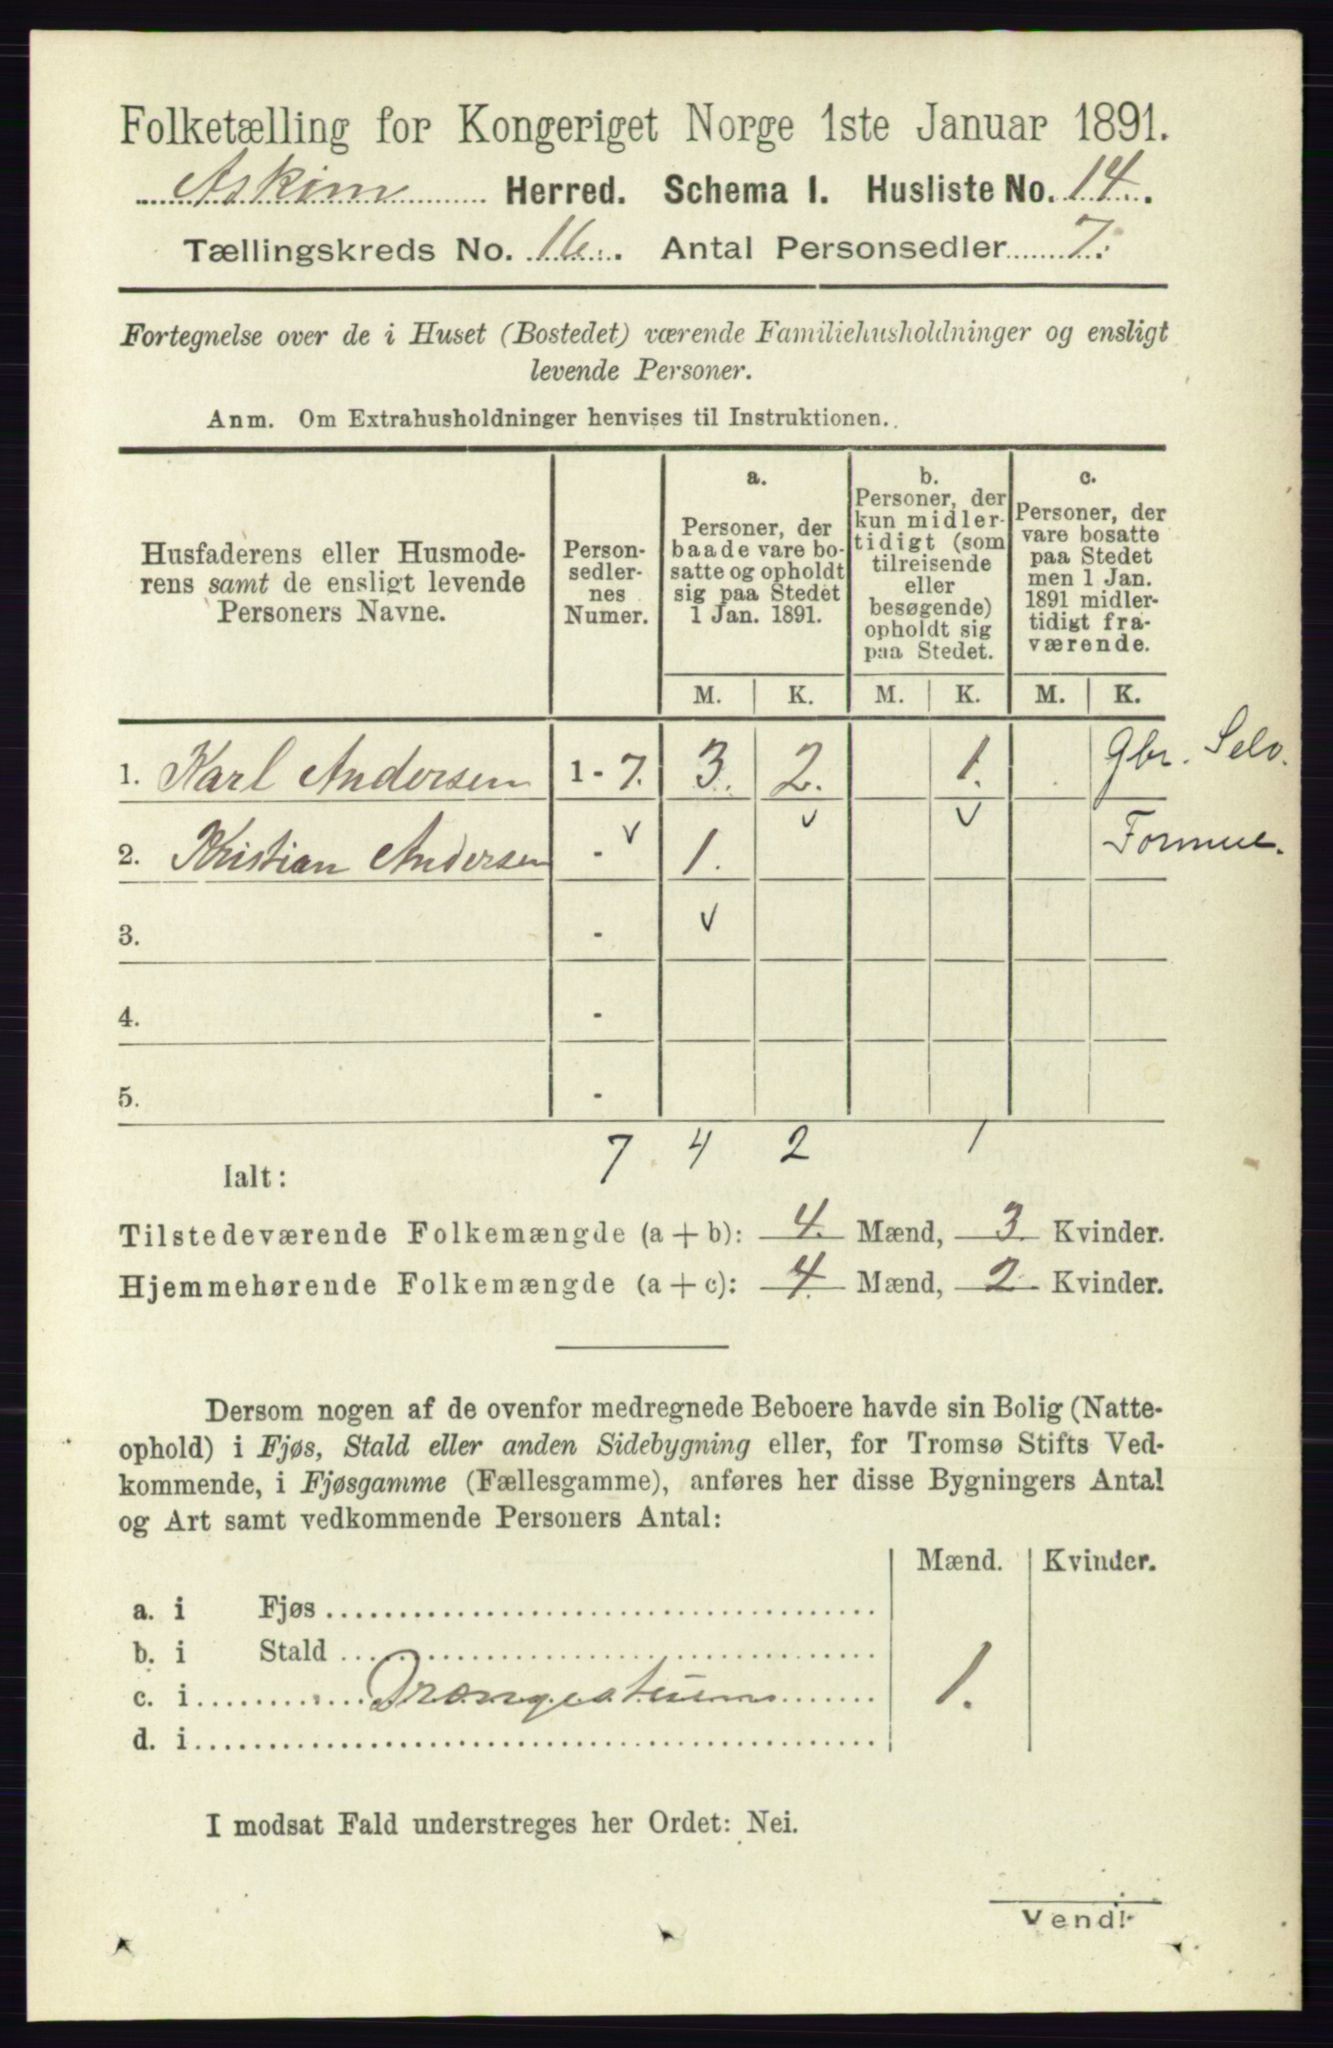 Folketælling for Kongeriget Norge 1ste Januar 1891.
Askim Herred. Schema I. Husliste No. 14.
Tællingskreds No. 16. Antal Personsedler 7.
Fortegnelse over de i Huset (Bostedet) værende Familiehusholdninger og ensligt
levende Personer.
Anm. Om Extrahusholdninger henvises til Instruktionen.
Husfaderens eller Husmode-
rens samt de ensligt levende
Personers Navne.
Person-
sedler-
nes
Numer.
a.
Personer, der
baade vare bo-
satte og opholdt
sig paa Stedet
1 Jan. 1891.
b.
Personer, der
kun midler-
tidigt (som
tilreisende
eller
besøgende)
opholdt sig
paa Stedet.
c.
Personer, der
vare bosatte
paa Stedet
men 1 Jan.
1891 midler-
tidigt fra-
værende.
M. K. M. K. M. K.
1. Karl Andersen 1 - 7. 3. 2. 1. Gbr. Selv.
2. Kristian Andersen - 1. Formue.
3. -
4. -
5. -
7 4 2 1
Ialt:
Tilstedeværende Folkemængde (a + b): 4. Mænd, 3. Kvinder.
Hjemmehørende Folkemængde (a + c): 4. Mænd, 2 Kvinder.
Dersom nogen af de ovenfor medregnede Beboere havde sin Bolig (Natte-
ophold) i Fjøs, Stald eller anden Sidebygning eller, for Tromsø Stifts Ved-
kommende, i Fjøsgamme (Fællesgamme), anføres her disse Bygningers Antal
og Art samt vedkommende Personers Antal:
Mænd. Kvinder.
a. i Fjøs
b. i Stald
c. i 1.
d. i
I modsat Fald understreges her Ordet: Nei.
Vend!